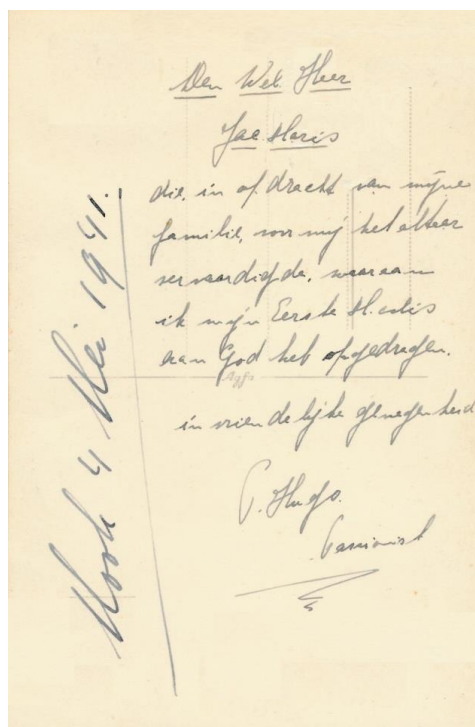 Den Wel. Heer
Jac. Maris
die, in opdracht van mijne
familie, voor mij het altaar
vervaardigde, waaraan
ik mijn Eerste H. Mis
aan God heb opgedragen.
in vriendelijke genegenheid
P. Hugo.
Passionist
Mook 4 Mei 1941.
Agfa